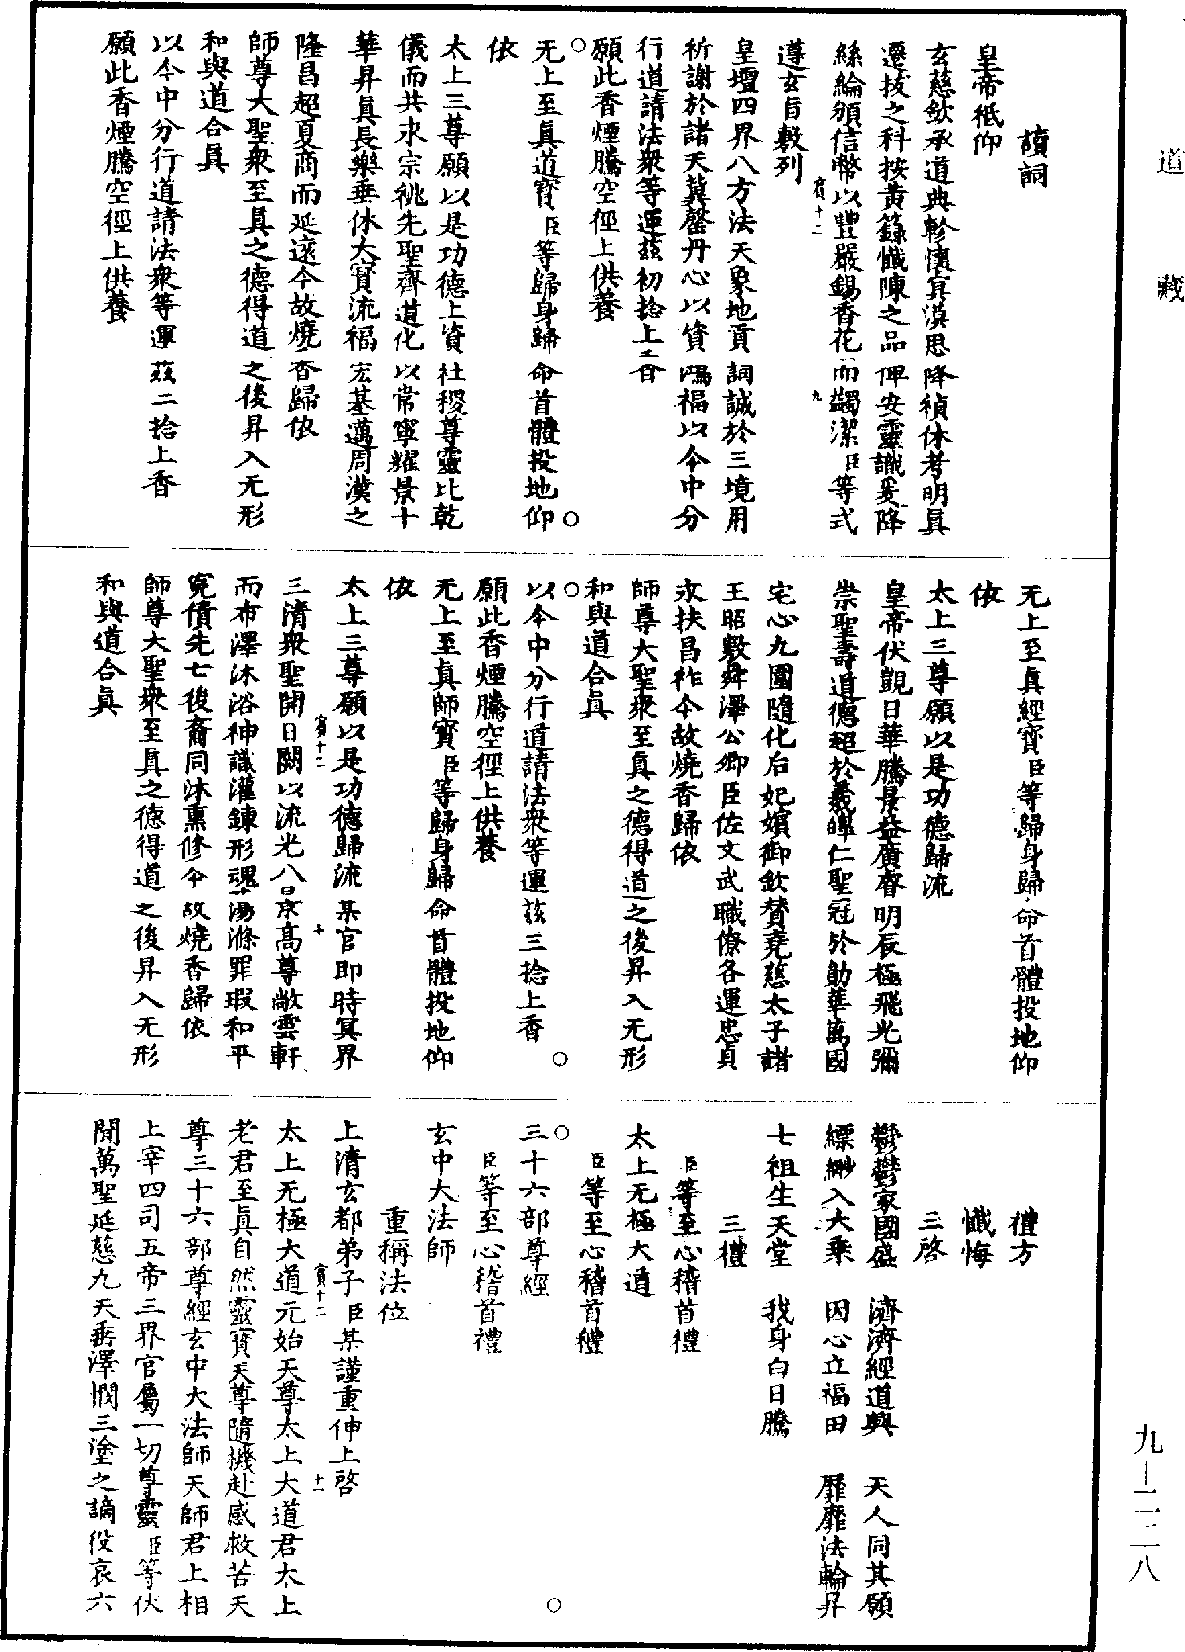 道藏
讀詞
皇帝祇仰
玄慈欽承道典軫懷㝠漠思降禎休考明眞
遷拔之科按黃籙懺陳之品俾安靈識爰降
絲綸頒信幣以豐嚴錫香花而蠲潔臣等式
賓十二 九
遵玄旨敷列
皇壇四界八方法天象地貢詞誠於三境用
祈謝於諸天冀罄丹心以資福以今中分
行道請法衆等運茲初捻上香
願此香煙騰空徑上供養
○无上至眞道寶臣等歸身歸命首體投地仰○
依
太上三尊願以是功德上資社稷尊靈比乾
儀而共永宗祧先聖齊道化以常寧耀景十
華昇眞長樂垂休大寶流福宏基邁周漢之
隆昌超夏商而延遠今故燒香歸依
師尊大聖衆至眞之德得道之後昇入无形
和與道合眞
以今中分行道請法衆等運茲二捻上香
願此香煙騰空徑上供養
无上至眞經寶臣等歸身歸命首體投地仰
依
太上三尊願以是功德歸流
皇帝伏覬日華騰景益廣睿明辰極飛光彌
崇聖壽道德超於羲皞仁聖冠於勛華萬國
宅心九圍隨化后妃嬪御欽贊堯慈太子諸
王昭敷舜澤公卿臣佐文武職僚各運忠貞
永扶昌祚今故燒香歸依
師尊大聖衆至眞之德得道之後昇入无形
和與道合眞
○以今中分行道請法衆等運茲三捻上香○
願此香煙騰空徑上供養
无上至眞師寶臣等歸身歸命首體投地仰
依
太上三尊願以是功德歸流某官即時冥界
賓十二 十
三清衆聖開日闕以流光八景高尊敞雲軒
而布澤沐浴神識灌鍊形魂蕩滌罪瑕和平
寃債先亡後裔同沐熏修今故燒香歸依
師尊大聖衆至眞之德得道之後昇入无形
和與道合眞
禮方
懺悔
三啓
鬱鬱家國盛 濟濟經道興 天人同其願
縹緲入大乘 因心立福田 靡靡法輪昇
七祖生天堂 我身白日騰
三禮
臣等至心稽首禮
太上无極大道
臣等至心稽首禮
○三十六部尊經○
臣等至心稽首禮
玄中大法師
重稱法位
上清玄都弟子臣某謹重伸上啓
賓十二 十一
太上无極大道元始天尊太上大道君太上
老君至眞自然靈寶天尊隨機赴感救苦天
尊三十六部尊經玄中大法師天師君上相
上宰四司五帝三界官屬一切尊靈臣等伏
聞萬聖延慈九天垂澤憫三塗之謫役哀六
九—一二八